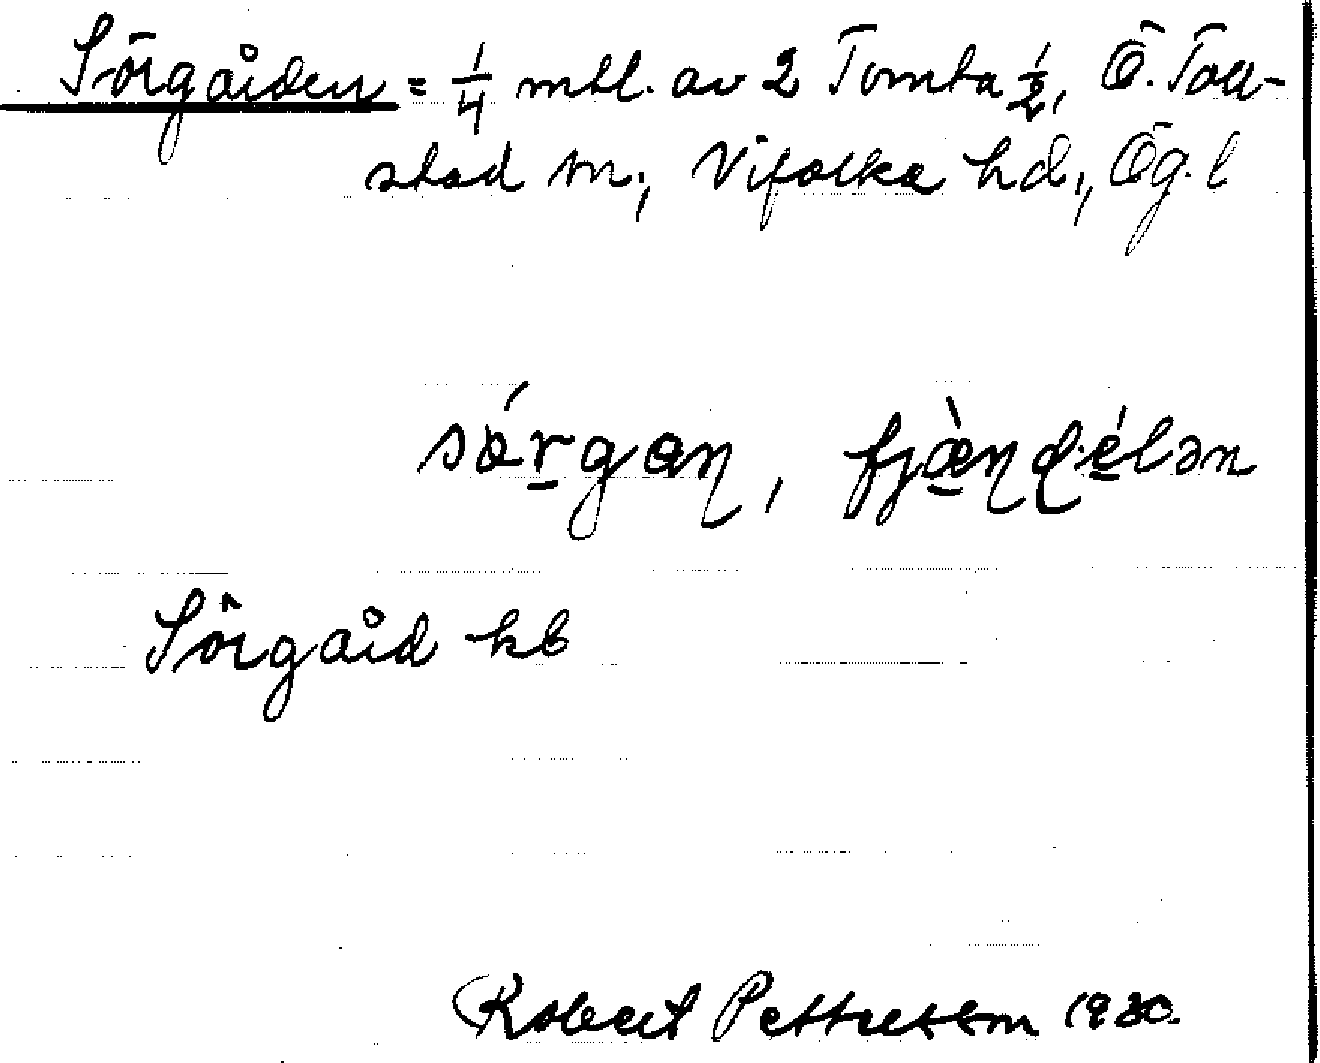 Sörgården = 1/4 mtl. av 2 Tomta 1/2, Ö. Toll-
stad sn, Vifolka hd, Ög. l
Sörgård kb
Robert Pettersson 1930.